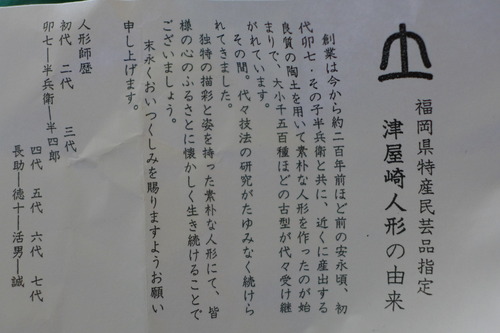 福岡県特産民芸品指定
津屋崎人形の由来
創業は今から約二百年前ほど前の安永頃、初
代卯七・その子半兵衛と共に、近くに産出する
良質の陶土を用いて素朴な人形を作ったのが始
まりで、大小千五百種ほどの古型が代々受け継
がれています。
その間。代々技法の研究がたゆみなく続けら
れてきました。
独特の描彩と姿を持った素朴な人形にて、皆
様の心のふるさとに懐かしく生き続けることで
ございましょう。
末永くおいつくしみを賜りますようお願い
申し上げます。
人形師歴
初代 二代 三代
卯七―半兵衛―半四郎
四代 五代 六代 七代
長助―徳十―活男―誠